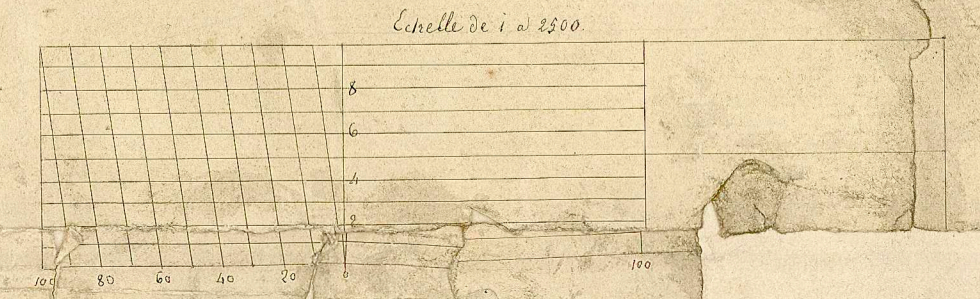 Echelle de 1 à 2500.
8
6
4
2
100 80 60 40 20 0 100